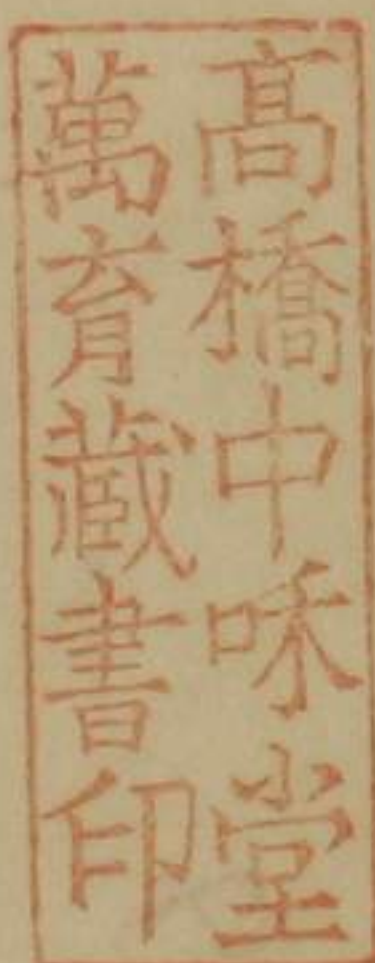 髙橋中咊堂
萬育蔵書印